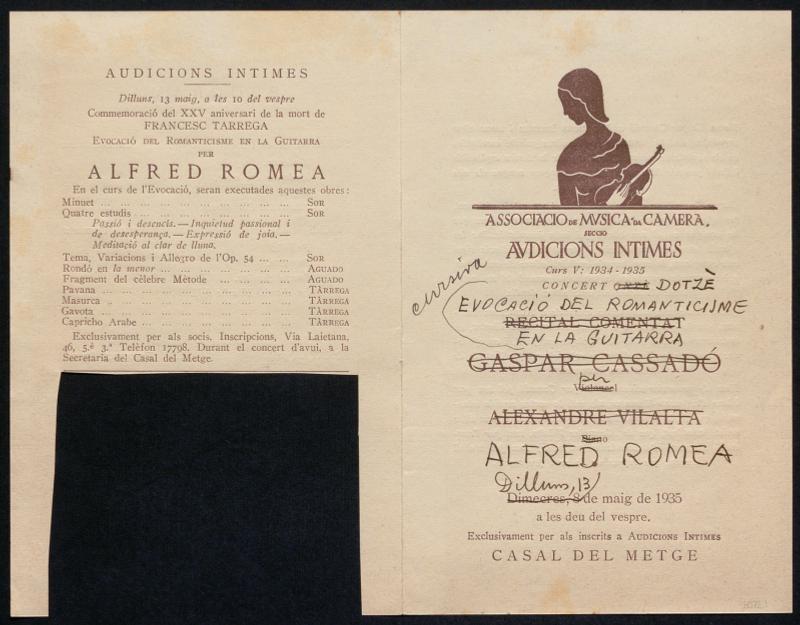 AUDICIONS INTIMES
Dilluns, 13 maig, a les 10 del vespre
Commemoració del XXV aniversari de la mort de
FRANCESC TARREGA
EVOCACIÓ DEL ROMANTICISME EN LA GUITARRA
PER
ALFRED ROMEA
En el curs de l'Evocació, seran executades aquestes obres:
Minuet ... ... ... ... ... ... ... ... ... SOR
Quatre estudis ... ... ... ... ... ... ... SOR
Passió i desencís. — Inquietud passional i
de desesperança. — Expressió de joia. —
Meditació al clar de lluna.
Tema, Variacions i Allegro de l'Op. 54 ... ... SOR
Rondó en la menor ... ... ... ... ... ... AGUADO
Fragment del cèlebre Mètode ... ... ... ... AGUADO
Pavana ... ... ... ... ... ... ... ... ... TÀRREGA
Masurca ... ... ... ... ... ... ... ... ... TÀRREGA
Gavota ... ... ... ... ... ... ... ... ... TÀRREGA
Capricho Arabe ... ... ... ... ... ... ... TÀRREGA
Exclusivament per als socis. Inscripcions, Via Laietana,
46, 5.è 3.ª Telèfon 17798. Durant el concert d'avui, a la
Secretaria del Casal del Metge.
ASSOCIACIO DE MVSICA DA CAMERA.
SECCIO
AVDICIONS INTIMES
Curs V: 1934 - 1935
CONCERT onzè DOTZÈ
cursiva
EVOCACIÓ DEL ROMANTICISME
RECITAL COMENTAT
EN LA GUITARRA
GASPAR CASSADÓ
per
Violoncel
ALEXANDRE VILALTA
Piano
ALFRED ROMEA
Dilluns, 13
Dimecres, 8 de maig de 1935
a les deu del vespre.
Exclusivament per als inscrits a AUDICIONS INTIMES
CASAL DEL METGE